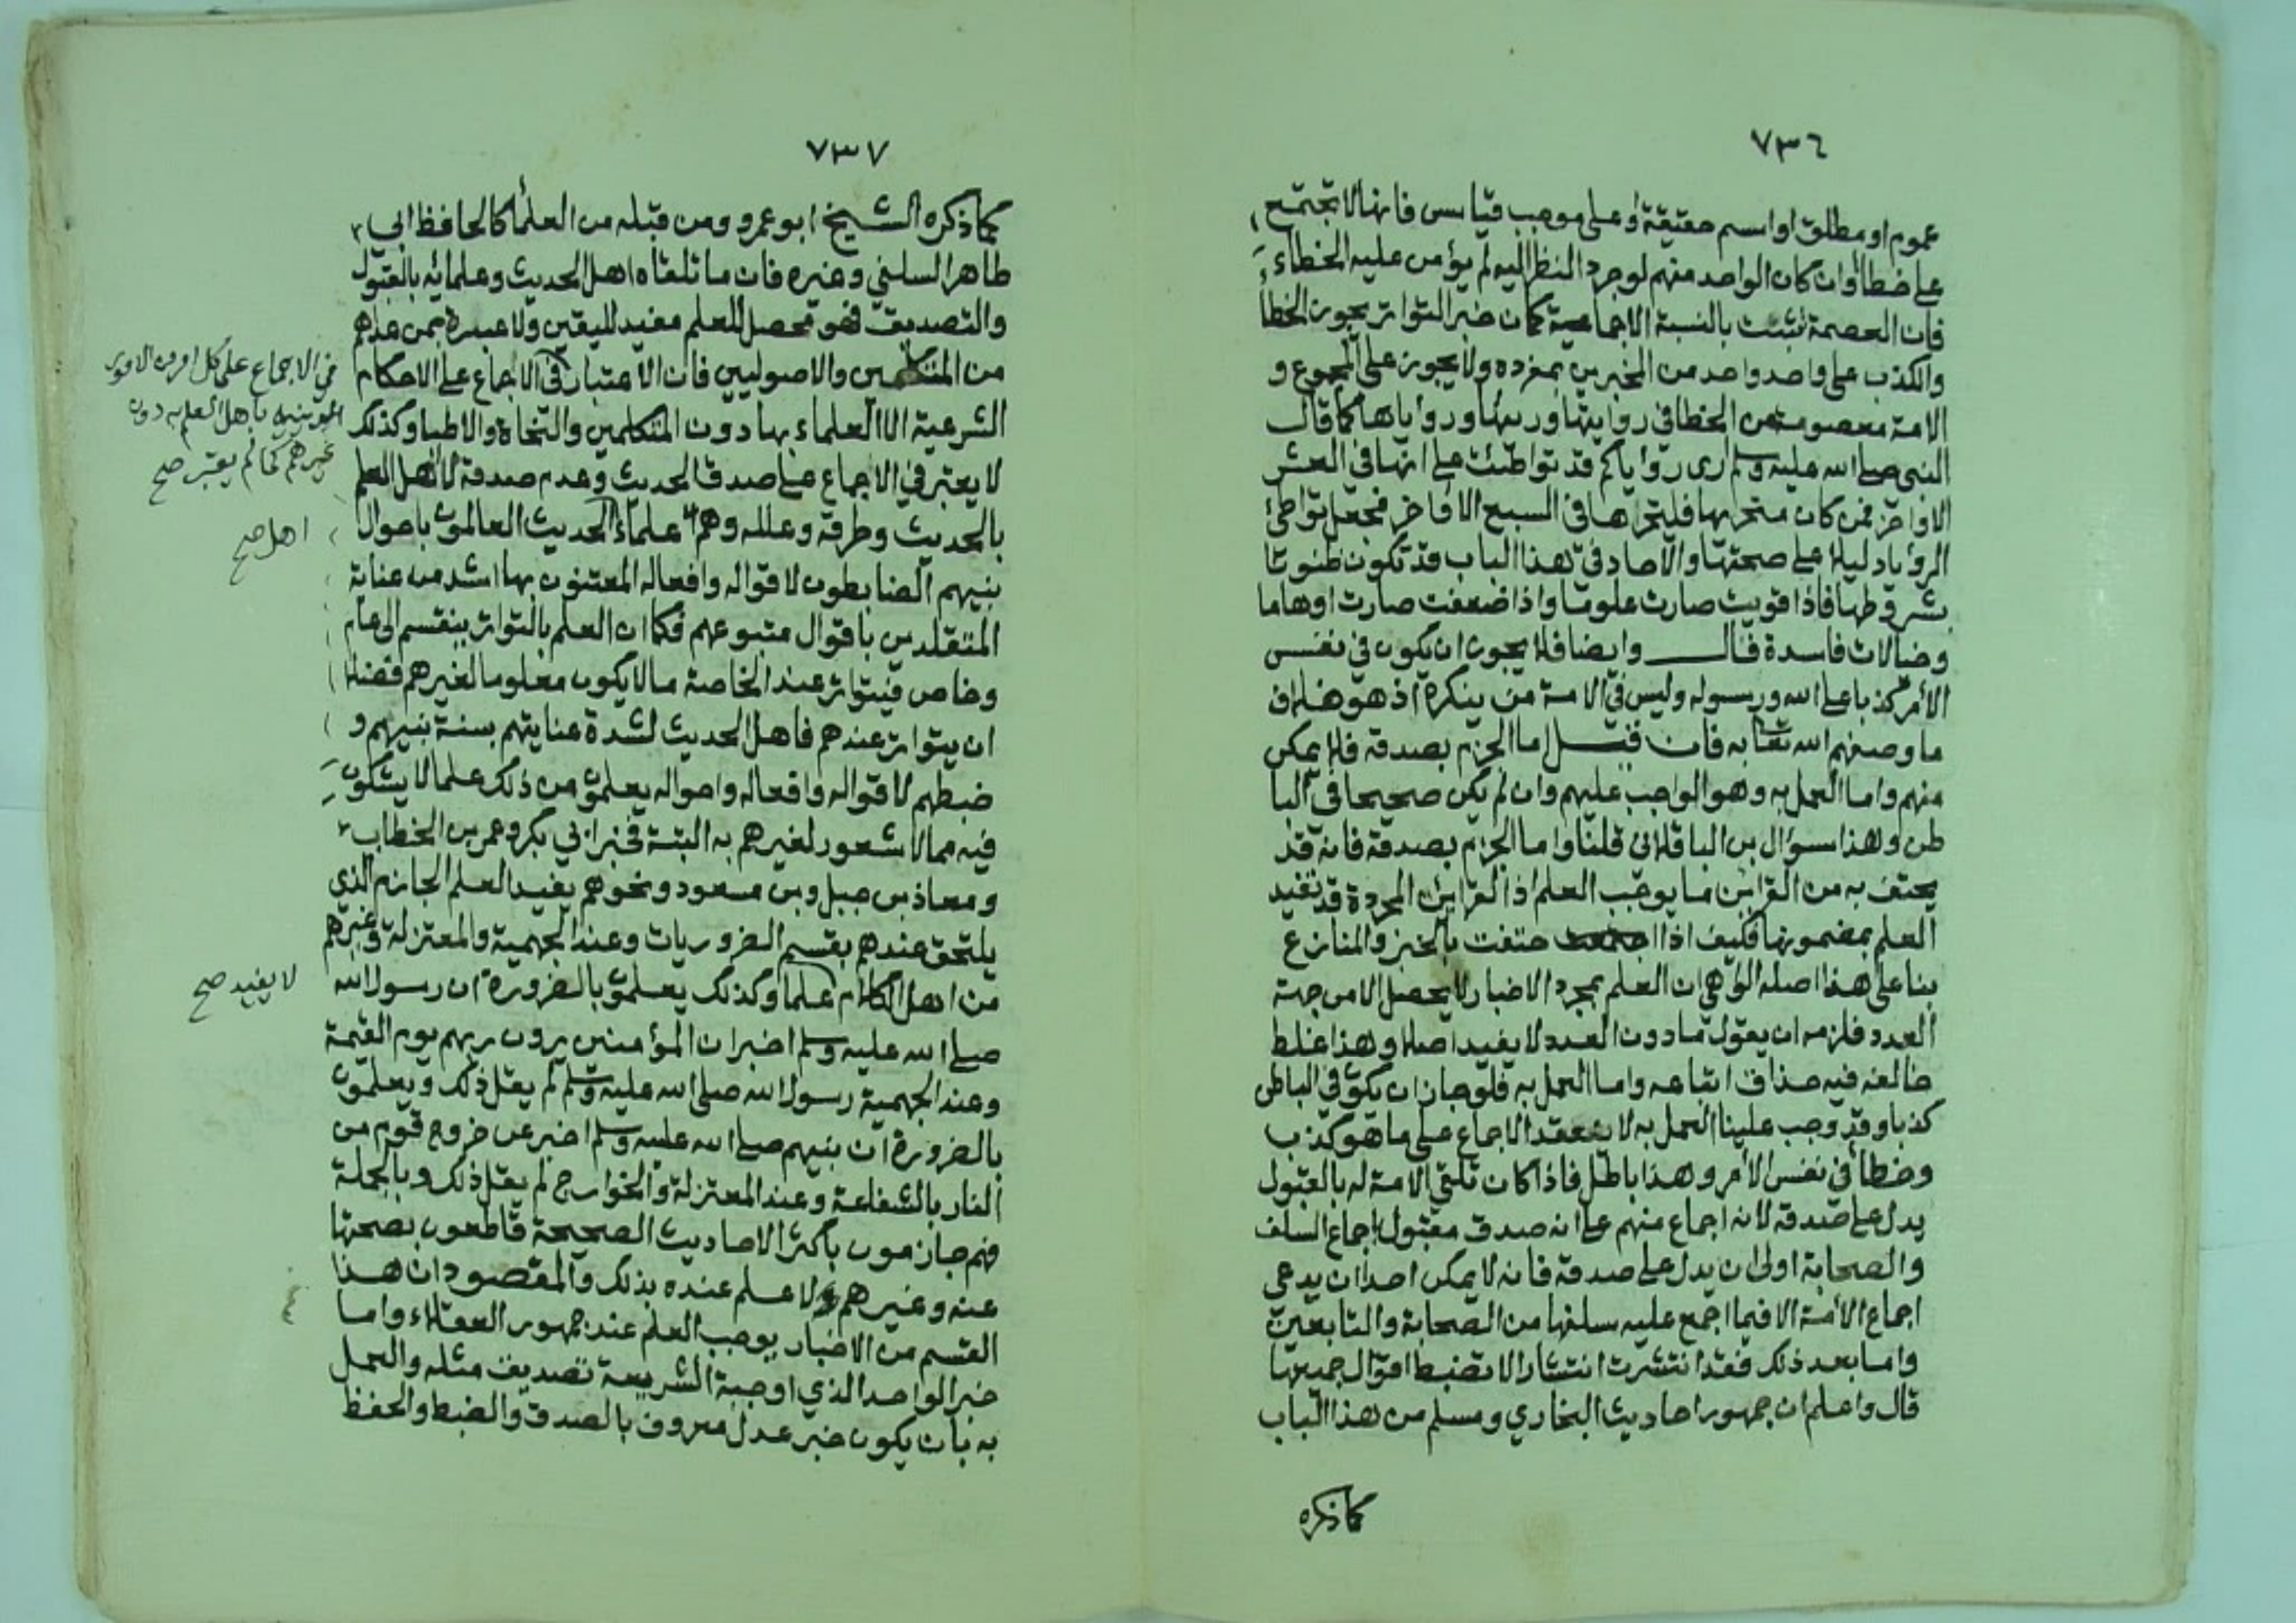 ٧٣٦
عموم او مطلق او اسم حقيقة او على موجب قياس فانها لا تجتمع
على خطا وان كان الواحد منهم لو جرد النظر اليه لم يؤمن عليه الخطاء
فان العصمة تثبت بالنسبة الاجماعية كما ان خبر التواتر يجوز الخطا
والكذب على واحد واحد من المخبرين بمفرده ولا يجوز على المجموع و
الامة معصومة من الخطا في روايتها ورايها وروياها كما قال
النبي صلى الله عليه وسلم ارى روياكم قد تواطئت على انها في العشر
الاواخر فمن كان متحريها فليتحرها في السبع الاواخر فجعل تواطئ
الرؤيا دليلا على صحتها والآحاد في هذا الباب قد تكون ظنونا
بشروطها فاذا قويت صارت علوما واذا ضعفت صارت اوهاما
وخيالات فاسدة قال وايضا فلا يجوز ان يكون في نفس
الأمر كذبا على الله ورسوله وليس في الامة من ينكره اذ هو خلاف
ما وصفهم الله تعا به فان قيل اما الجزم بصدقه فلا يمكن
منهم واما العمل به وهو الواجب عليهم وان لم يكن صحيحا في البا
طن وهذا سوال بن الباقلاني قلنا واما الجزم بصدقه فانه قد
يحتف به من القراين ما يوجب العلم اذ القراين المجردة قد تفيد
العلم بمضمونها فكيف اذا احتفت بالخبز والمنازع
بنا على هذا اصله الواهي ان العلم بمجرد الاخبار لا يحصل الا من جهة
العدد فلزمه ان يقول ما دون العدد لا يفيد اصلا وهذا غلط
خالفه فيه حذاق اتباعه واما العمل به فلو جاز ان يكون في الباطن
كذبا وقد وجب علينا العمل به لانعقد الاجماع على ما هو كذب
وخطأ في نفس الأمر وهذا باطل فاذا كان تلقي الامة له بالقبول
يدل على صدقه لانه اجماع منهم على انه صدق مقبول اجماع السلف
والصحابة اولى ان يدل على صدقه فانه لا يمكن احدا ان يدعى
اجماع الأمة الا فيما اجمع عليه سلفها من الصحابة والتابعين
واما بعد ذلك فقد انتشرت انتشارا لا تضبط اقوال جميعها
قال واعلم ان جمهور احاديث البخاري ومسلم من هذا الباب
كما ذكره
٧٣٧
كما ذكره الشيخ ابو عمرو ومن قبله من العلماء كالحافظ ابي
طاهر السلفي وغيره فان ما تلقاه اهل الحديث وعلمائه بالقبول
والتصديق فهو محصل للعلم مفيد لليقين ولا عبرة بمن عداهم
من المتكلمين والاصوليين فان الاعتبار في الاجماع على الاحكام
في الاجماع على كل امر من الامور
الدينية باهل العلم به دون
غيرهم كما لم يعتبر صح
الشرعية الا العلماء بها دون المتكلمين والنحاة والاطبا وكذلك
لا يعتبر في الاجماع على صدق الحديث وعدم صدقه الا اهل العلم
بالحديث وطرقه وعلله وهم علماء الحديث العالمون باحوال
اهل صح
نبيهم الضابطون لاقواله وافعاله المعتنون بها اشد من عناية
المتقلدين باقوال متبوعهم فكما ان العلم بالتواتر ينقسم الى عام
وخاص فيتواتر عند الخاصة ما لا يكون معلوما لغيرهم فضلا
ان يتواتر عندهم فاهل الحديث لشدة عنايتهم بسنة نبيهم و
ضبطهم لاقواله وافعاله واحواله يعلمون من ذلك علما لا يشكون
فيه مما لا شعور لغيرهم به البتة فخبر ابي بكر وعمر بن الخطاب
ومعاذ بن جبل وبن مسعود ونحوهم يفيد العلم الجازم الذي
يلتحق عندهم بقسم الضروريات وعند الجهمية والمعتزلة وغيرهم
من اهل الكلام علما وكذلك يعلمون بالضرورة ان رسول الله
لا يفيد صح
صلى الله عليه وسلم اخبر ان المؤمنين يرون ربهم يوم القيمة
وعند الجهمية رسول الله صلى الله عليه وسلم لم يقل ذلك ويعلمون
بالضرورة ان نبيهم صلى الله عليه وسلم اخبر عن خروج قوم من
النار بالشفاعة وعند المعتزلة والخوارج لم يقل ذلك وبالجملة
فهم جازمون باكثر الاحاديث الصحيحة قاطعون بصحتها
عنه وغيرهم لا علم عنده بذلك والمقصود ان هذا
القسم من الاخبار يوجب العلم عند جمهور العقلاء واما
خبر الواحد الذي اوجبة الشريعة تصديق مثله والعمل
به بان يكون خبر عدل معروف بالصدق والضبط والحفظ